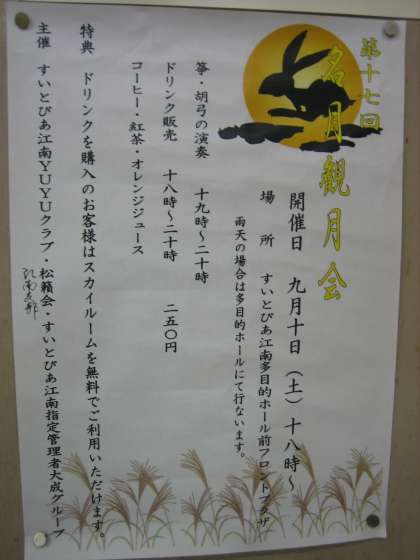 第十七回
名月観月会
開催日 九月十日(土)十八時〜
場所 すいとぴあ江南多目的ホール前フロントプラザ
雨天の場合は多目的ホールにて行ないます。
箏・胡弓の演奏 十九時〜二十時
ドリンク販売 十八時〜二十時 二五〇円
コーヒー・紅茶・オレンジジュース
特典 ドリンクを購入のお客様はスカイルームを無料でご利用いただけます。
主催 すいとぴあ江南YUYUクラブ・松籟会・すいとぴあ江南指定管理者大成グループ
江南支部